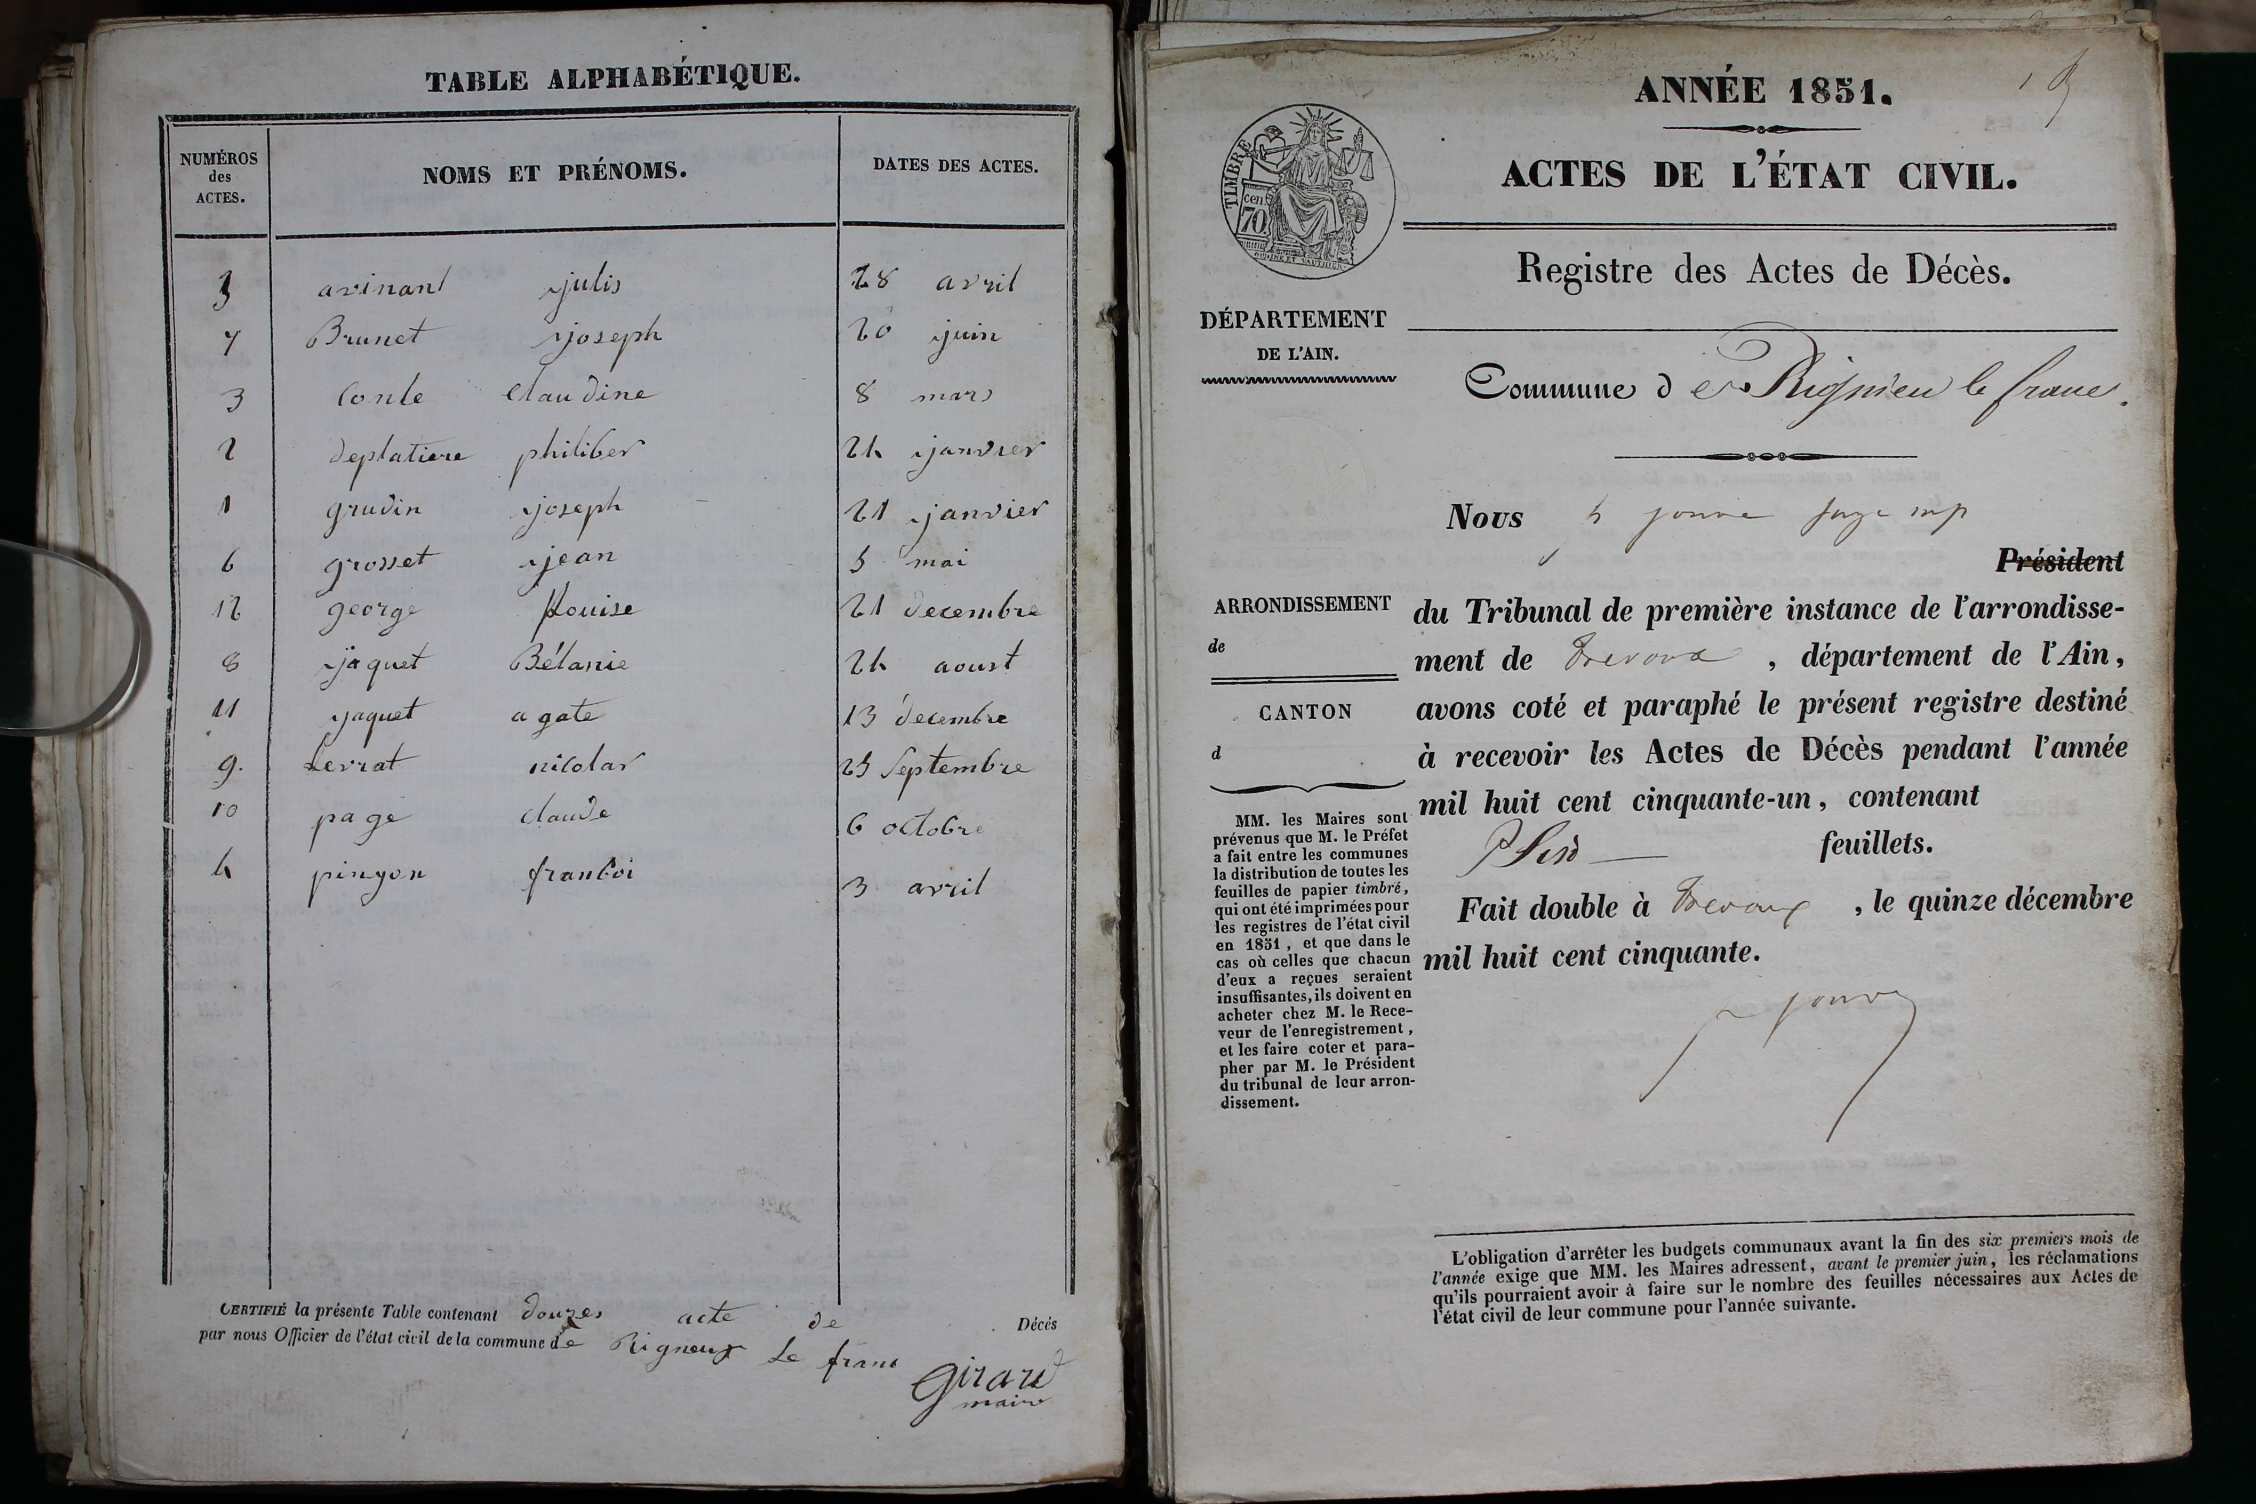 TABLE ALPHABÉTIQUE.
NUMÉROS des ACTES. NOMS ET PRÉNOMS. DATES DES ACTES.
5 avinant julis 28 avril
7 Brunet joseph 20 juin
3 Conte Claudine 8 mars
2 deplatiere philiber 24 janvier
1 grudin joseph 21 janvier
6 grosset jean 5 mai
12 george Louise 21 decembre
8 jaquet Bélanie 24 aoust
11 jaquet agate 13 decembre
9. Levrat nicolas 25 Septembre
10 page claude 6 octobre
4 pingon franboi 3 avril
CERTIFIÉ la présente Table contenant douzes acte de Décès
par nous Officier de l'état civil de la commune de Rigneux Le franc
girard
maire
ANNÉE 1851.
TIMBRE
70 cen
ACTES DE L'ÉTAT CIVIL.
Registre des Actes de Décès.
DÉPARTEMENT
DE L'AIN.
Commune de Rignieu le franc.
Nous jouve juge
Président
ARRONDISSEMENT
de
CANTON
d
du Tribunal de première instance de l'arrondisse-
ment de Trevoux, département de l'Ain,
avons coté et paraphé le présent registre destiné
à recevoir les Actes de Décès pendant l'année
mil huit cent cinquante-un, contenant
feuillets.
Fait double à Trevoux, le quinze décembre
mil huit cent cinquante.
jouve
MM. les Maires sont
prévenus que M. le Préfet
a fait entre les communes
la distribution de toutes les
feuilles de papier timbré,
qui ont été imprimées pour
les registres de l'état civil
en 1851, et que dans le
cas où celles que chacun
d'eux a reçues seraient
insuffisantes, ils doivent en
acheter chez M. le Rece-
veur de l'enregistrement,
et les faire coter et para-
pher par M. le Président
du tribunal de leur arron-
dissement.
L'obligation d'arrêter les budgets communaux avant la fin des six premiers mois de
l'année exige que MM. les Maires adressent, avant le premier juin, les réclamations
qu'ils pourraient avoir à faire sur le nombre des feuilles nécessaires aux Actes de
l'état civil de leur commune pour l'année suivante.